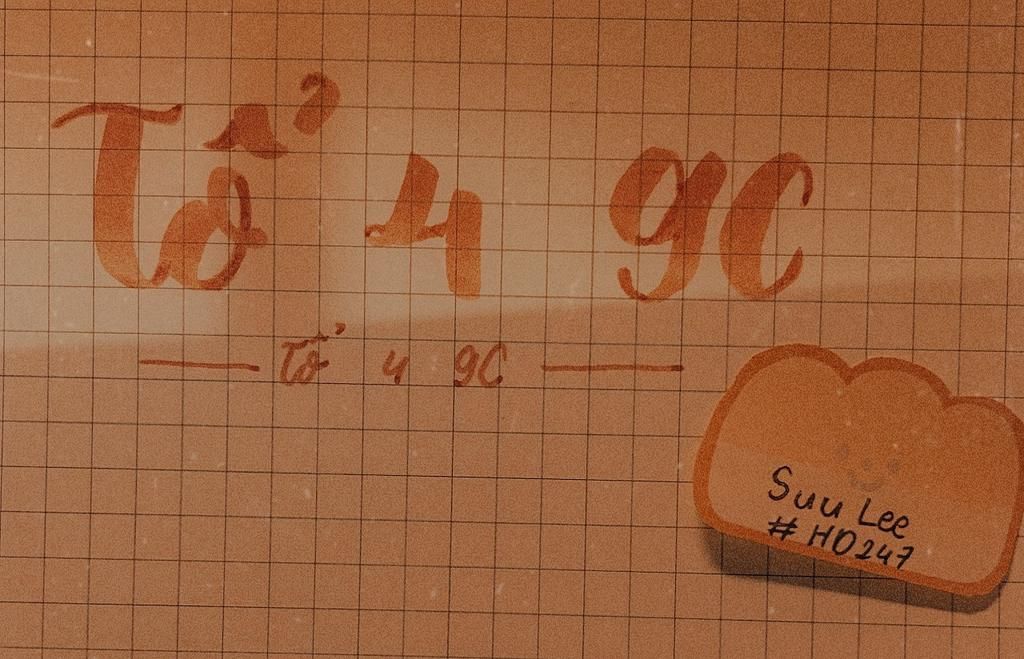 Tổ 4 9C
Tổ 4 9C
Suu Lee
# HD247